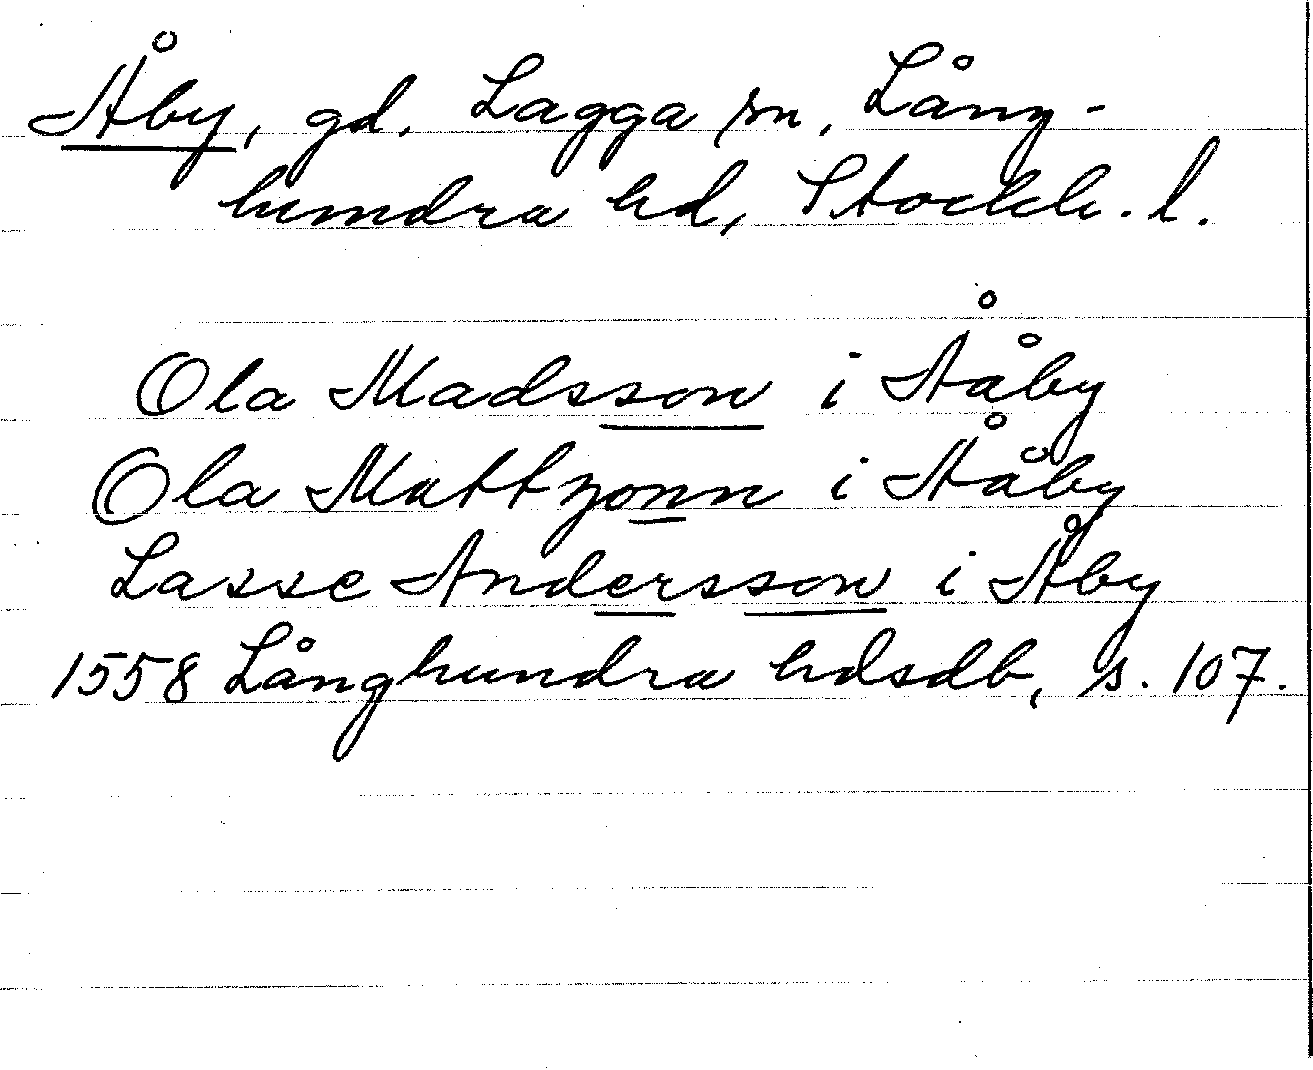 Åby, gd. Lagga sn, Lång-
hundra hd, Stockh. l.
Ola Madsson i Ååby
Ola Mattzonn i Ååby
Lasse Andersson i Åby
1558 Långhundra hdsdb, s. 107.